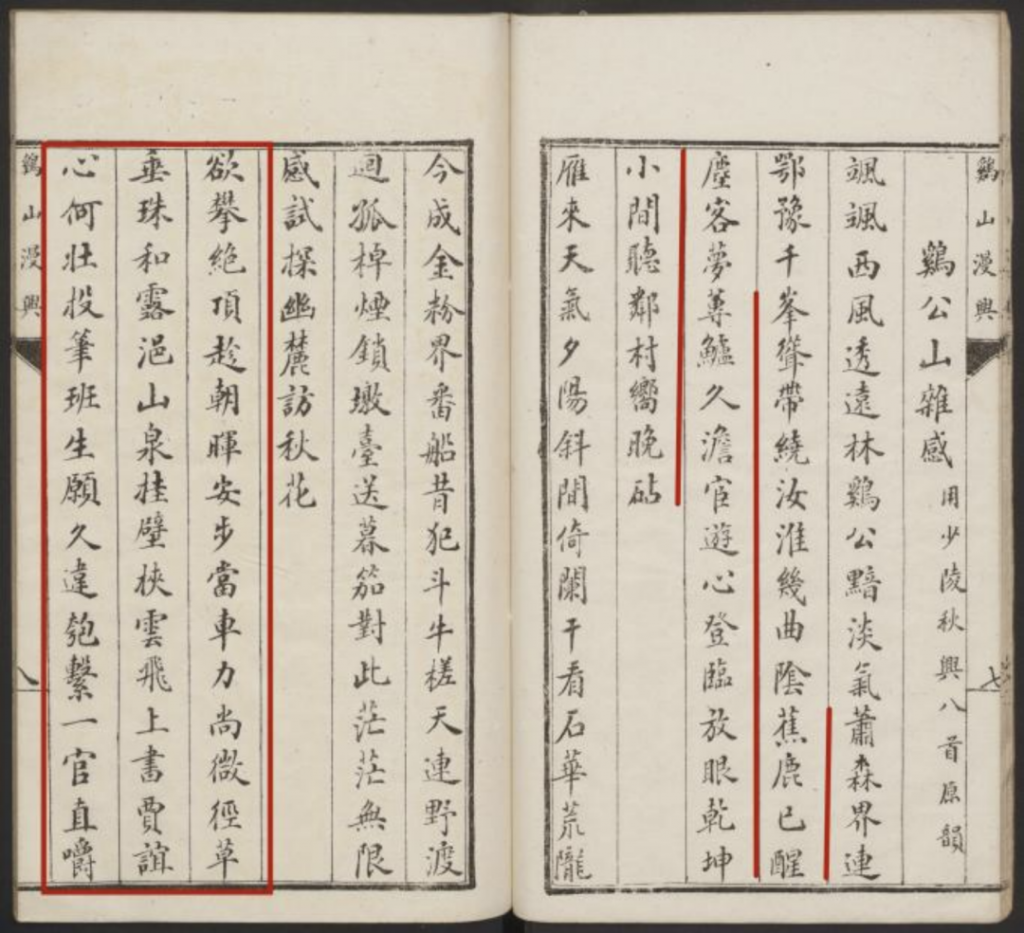 鷄山漫興
七
鷄公山雜感 用少陵秋興八首原韻
颯颯西風透遠林鷄公黯淡氣蕭森界連
鄂豫千峯聳帶繞汝淮幾曲陰蕉鹿已醒
塵客夢蓴鱸久澹宦遊心登臨放眼乾坤
小間聽鄰村嚮晚砧
雁來天氣夕陽斜間倚闌干看石華荒隴
今成金粉界番船昔犯斗牛槎天連野渡
迴孤棹煙鎖墩臺送暮笳對此茫茫無限
感試探幽麓訪秋花
欲攀絕頂趁朝暉安步當車力尚微徑草
垂珠和露浥山泉挂壁挾雲飛上書賈誼
心何壯投筆班生願久違匏繫一官直嚼
鷄山漫興
八